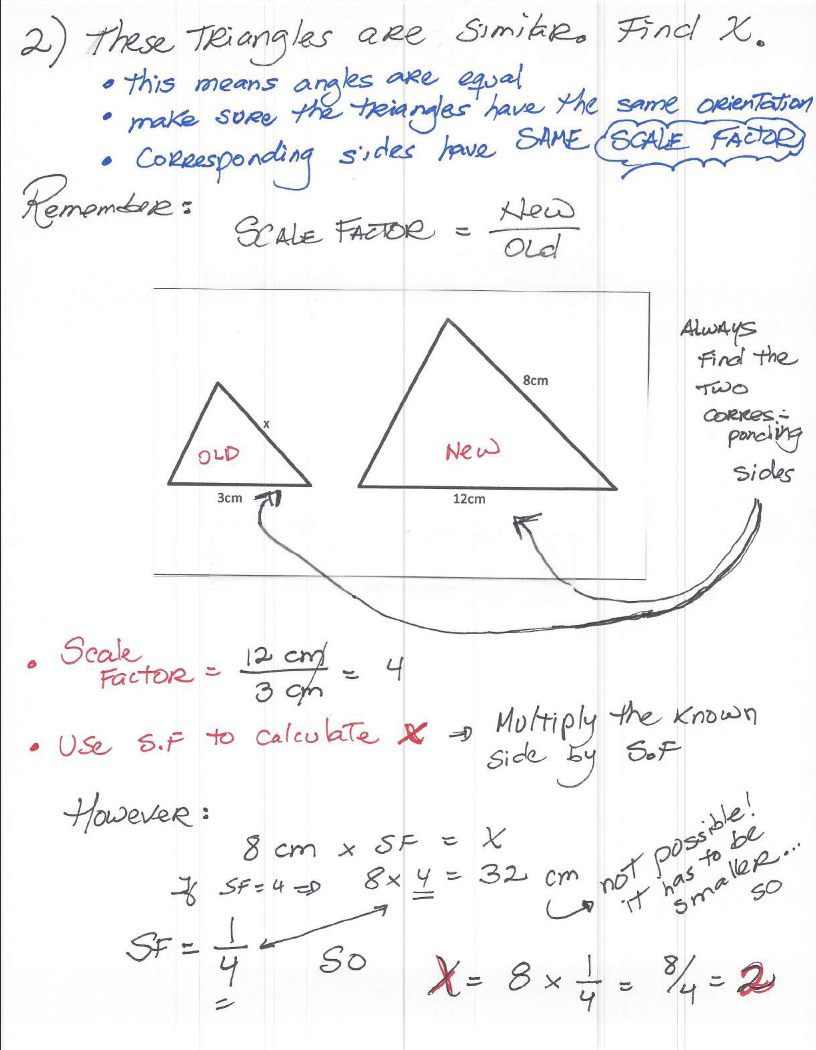 2) These Triangles are similar. Find X.
• this means angles are equal
• make sure the triangles have the same orientation
• Corresponding sides have SAME SCALE FACTOR
Remember:
SCALE FACTOR = New
Old
ALWAYS
Find the
TWO
CORRES-
ponding
sides
8cm
x
OLD
New
3cm
12cm
• Scale
Factor = 12 cm
3 cm
= 4
• Use S.F to calculate X ⇒ Multiply the known
side by S.F
However:
8 cm x SF = X
If SF=4 ⇒ 8x 4 = 32 cm
not possible!
it has to be
smaller...
so
SF = 1
4
=
SO
X = 8 x 1
4
= 8/4 = 2